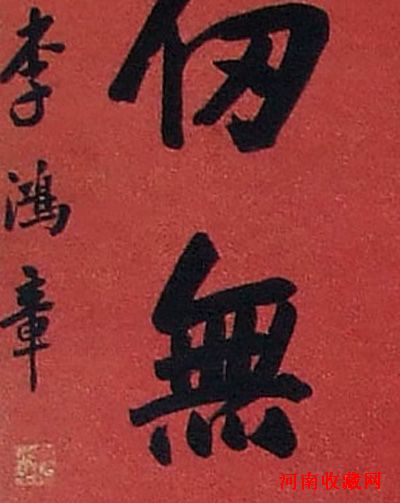 仞無
李鴻章
河南收藏网